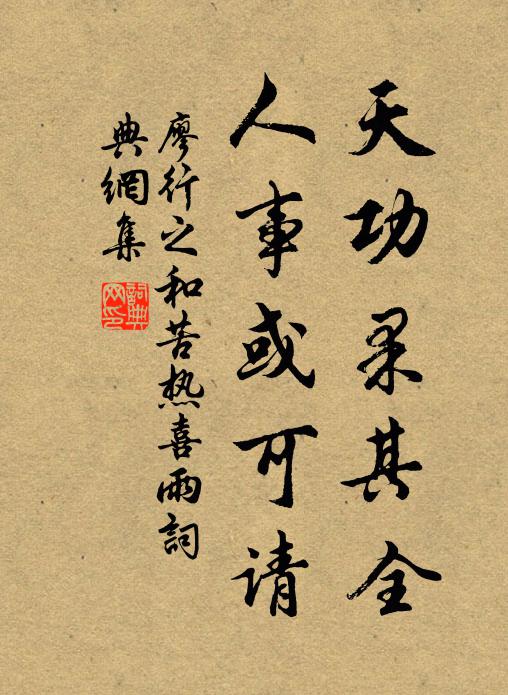 天功果其全
人事或可请
廖行之和苦热喜雨詞
典網集
詞典网印